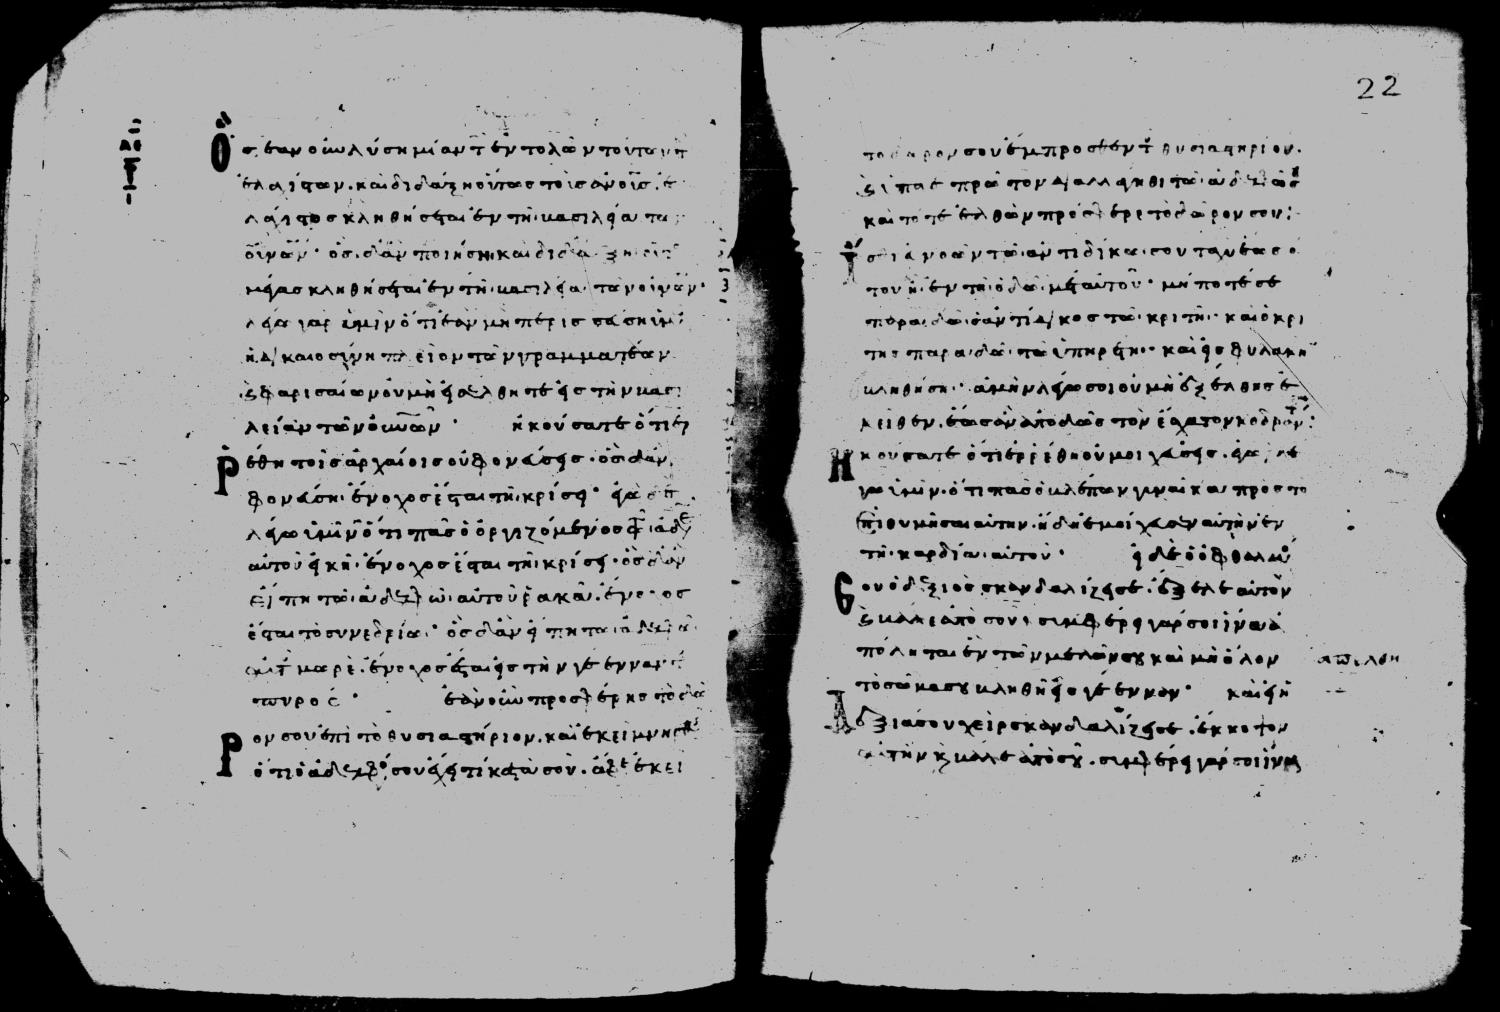 ὃς ἐὰν οὖν λύσῃ μίαν τ ἐντολῶν τούτων τ
ἐλαχίστων. καὶ διδάξῃ οὕτως τοὺς ἀνους. ἐ
λάχιστος κληθήσεται ἐν τῇ βασιλεία τῶ
οὐνῶν· ὃς δ' ἂν ποιήσῃ καὶ διδάξῃ οὗτ
μέγας κληθήσεται ἐν τῇ βασιλεία τῶν οὐνῶν·
λέγω γὰρ ὑμῖν ὅτι ἐὰν μὴ περισσεύσῃ ὑμ
ἡ δικαιοσύνη πλεῖον τῶν γραμματέων
κ φαρισαίων οὐ μὴ εἰσέλθητε εἰς τὴν βασι
λείαν τῶν οὐνῶν· ἠκούσατε ὅτι ἐρ
ρέθη τοῖς ἀρχαίοις οὐ φονεύσεις· ὃς δ' ἂν
φονεύσῃ ἔνοχος ἔσται τῇ κρίσει· ἐγὼ δὲ
λέγω ὑμῖν ὅτι πᾶς ὁ ὀργιζόμενος τ ἀδελ
αὐτοῦ εἰκῆ ἔνοχος ἔσται τῇ κρίσει· ὃς δ' ἂν
εἴπῃ τῷ ἀδελφῷ αὐτοῦ ῥακά. ἔνοχος
ἔσται τῷ συνεδρίω· ὃς δ' ἂν εἴπῃ τῷ ἀδελφῷ
αὐτ μωρέ. ἔνοχος ἔσται εἰς τὴν γέενναν τ
πυρός· ἐὰν οὖν προσφέρῃς τὸ δῶ
ρον σου ἐπὶ τὸ θυσιαστήριον. καὶ ἐκεῖ μνησθῇς
ὅτι ὁ ἀδελφός σου ἔχει τι κατὰ σοῦ. ἄφες ἐκεῖ
22
τὸ δῶρον σου ἔμπροσθεν τ θυσιαστηρίου.
κ ὕπαγε πρῶτον διαλλάγηθι τῷ ἀδελφῷ σ
καὶ τότε ἐλθὼν πρόσφερε τὸ δῶρον σου·
ἴσθι εὐνοῶν τῷ ἀντιδίκω σου ταχὺ ἕως ὅ
του εἶ ἐν τῇ ὁδῷ μετ αὐτοῦ· μήποτέ σε
παραδῶ ὁ ἀντίδικος τῷ κριτῇ· καὶ ὁ κρι
τής παραδῶ τῷ ὑπηρέτῃ· καὶ εἰς φυλακὴν
κληθήσῃ· ἀμὴν λέγω σοι οὐ μὴ ἐξέλθῃς ἐ
κεῖθεν. ἕως ἂν ἀποδῷς τὸν ἔσχατον κοδράντ·
ἠκούσατε ὅτι ἐρρέθη οὐ μοιχεύσεις. ἐγὼ δὲ
λέγω ὑμῖν. ὅτι πᾶς ὁ βλέπων γυναῖκα πρὸς τὸ
ἐπιθυμῆσαι αὐτὴν. ἤδη ἐμοίχευσεν αὐτὴν ἐν
τῇ καρδία αὐτοῦ· εἰ δὲ ὁ ὀφθαλμ
σου ὁ δεξιὸς σκανδαλίζει σε. ἔξελε αὐτὸν
κ βάλε ἀπὸ σοῦ· συμφέρει γάρ σοι ἵνα
ἀπόληται ἓν τῶν μελῶν σου καὶ μὴ ὅλον
ἀπέλθη
τὸ σῶμα σου βληθῇ εἰς γέενναν· καὶ εἰ ἡ
δεξιά σου χεὶρ σκανδαλίζει σε. ἔκκοψον
αὐτὴν κ βάλε ἀπὸ σοῦ. συμφέρει γάρ σοι ἵνα